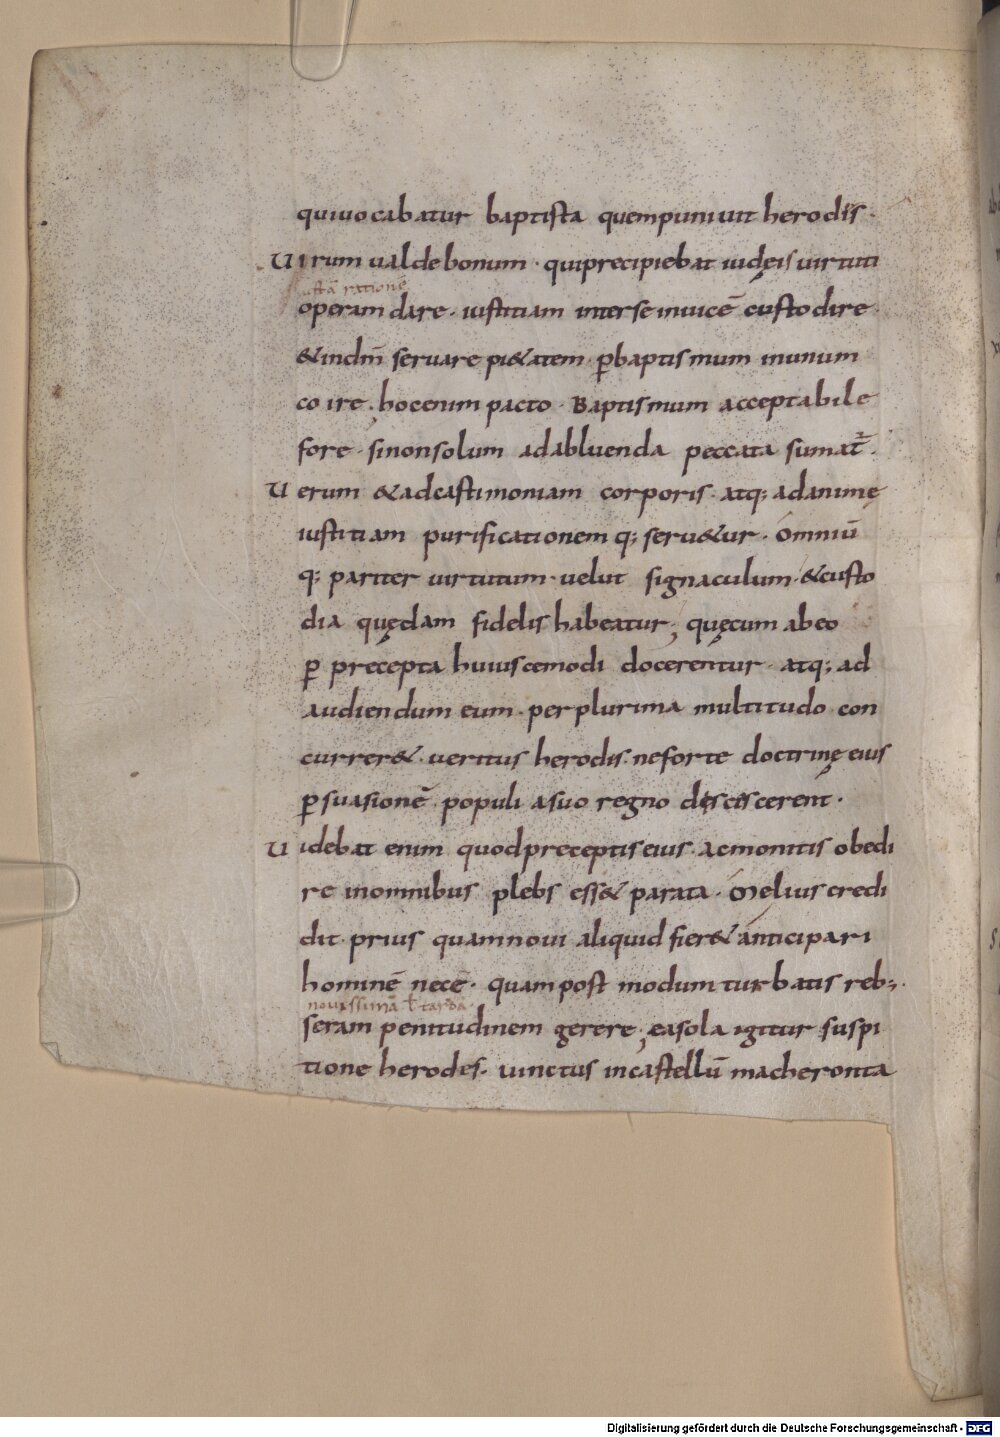 quiuocabatur baptista quempuniuit herodis.
Uirum ualdebonum. quiprecipiebat iudęis uirtuti
iustā ratione
operam dare. iustitiam interseinuicē custodire.
&indnī seruare pi&atem. ꝑbaptismum inunum
coire; hocenim pacto. Baptismum acceptabile
fore. sinonsolum adabluenda peccata sumat̄.
Uerum &adcastimoniam corporis. atq; adanimę
iustitiam purificationem q; seru&ur. Omniū
q; pariter uirtutum. uelut signaculum. &custo
dia quędam fidelis habeatur; quęcum abeo
ꝑ precepta huiuscemodi docerentur. atq; ad
audiendum eum. perplurima multitudo con
currer&. ueritus herodis. neforte doctrinę eius
ꝑsuasionē populi asuo regno desciscerent.
Uidebat enim quodpreceptiseius. acmonitis obedi
re inomnibus plebs ess& parata. Melius credi
dit. prius quamnoui aliquid fier& anticipari
hominē necē. quampost modum turbatis reb;.
nouissimā ł tardā.
seram penitudinem gerere; easola igitur suspi
tione herodes. uinctus incastellū macheronta
Digitalisierung gefördert durch die Deutsche Forschungsgemeinschaft - DFG